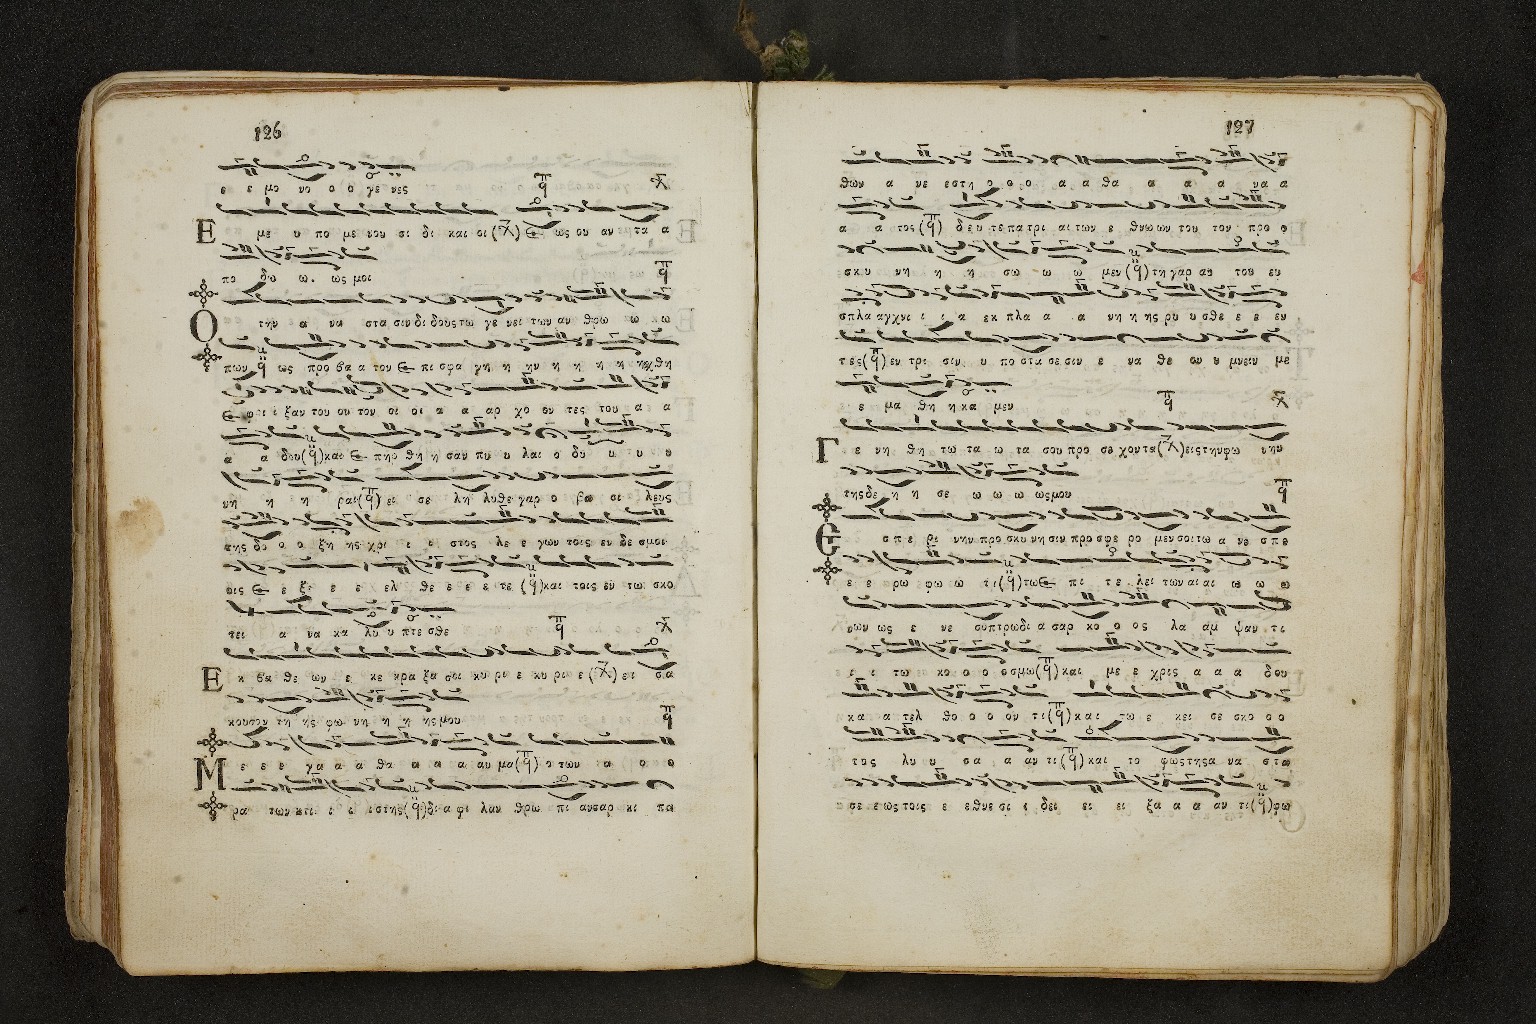 126
ε ε μο νο ο ο γε νες
Ε με υ πο με νου σι δι και οι ως ου αν τα α
πο δω ω. ως μοι
Ο την α να στα σιν δι δους τω γε νει των αν θρω ω ω
πων ως προ βα α τον ε πι σφα γη η ην η η η η ηχθη
ε φρι ι ξαν του ου τον οι οι α α αρ χο ον τες του α α
α α δου και ε πηρ θη η σαν πυ υ λαι ο δυ υ υ υ
νη η η ραι ει σε λη λυθε γαρ ο βα σι λευς
της δο ο ο ξη ης χρι ι ι στος λε ε γων τοις εν δε σμοι
οις ε ε ξε ε ε ελ θε ε ε ε τε και τοις εν τω σκο
τει α να κα λυ υ πτε σθε
Ε κ βα θε ων ε κε κρα ξα σοι κυ ρι ε κυ ρι ε ει σα
κουσον τη ης φω νη η η ης μου
Μ ε ε ε γα α α θα α α α αυ μα ο των α ο ο
ρα των κτι ι ι ι ιστης δι α φι λαν θρω πι ανσαρ κι πα
127
θων α νε εστη ο ο ο α α θα α α α να α
α α τος δευ τε πα τρι αι των ε θνωων του τον προ ο
σκυ νη η η σω ω ω μεν τη γαρ αυ του ευ
σπλα αγχνι ι ι α εκ πλα α α νη η ης ρυ υ σθε ε ε εν
τες εν τρι σιν υ πο στα σε σιν ε να θε ον υ μνειν με
ε μα θη η κα μεν
Γ ε νη θη τω τα ω τα σου προ σε χοντα εις την φω νην
της δε η η σε ω ω ω ως μου
Ε σπε ρι νην προ σκυ νη σιν προ σφε ρο μεν σοι τω α νε σπε
ε ε ρω φω ω τι τω ε πι τε λει των αι αι ω ω ω
νων ως ε νε σοπτρω δι α σαρ κο ο ος λα αμ ψαν τι
ι ι τω κο ο ο οσμω και με ε χρις α α α δου
κα α τελ θο ο ο ον τι και τω ε κει σε σκο ο ο
τος λυ υ σα α αν τι και το φως της α να στα
α σε ε ως τοις ε ε θνε σι ι δει ει ει ξα α α αν τι φω